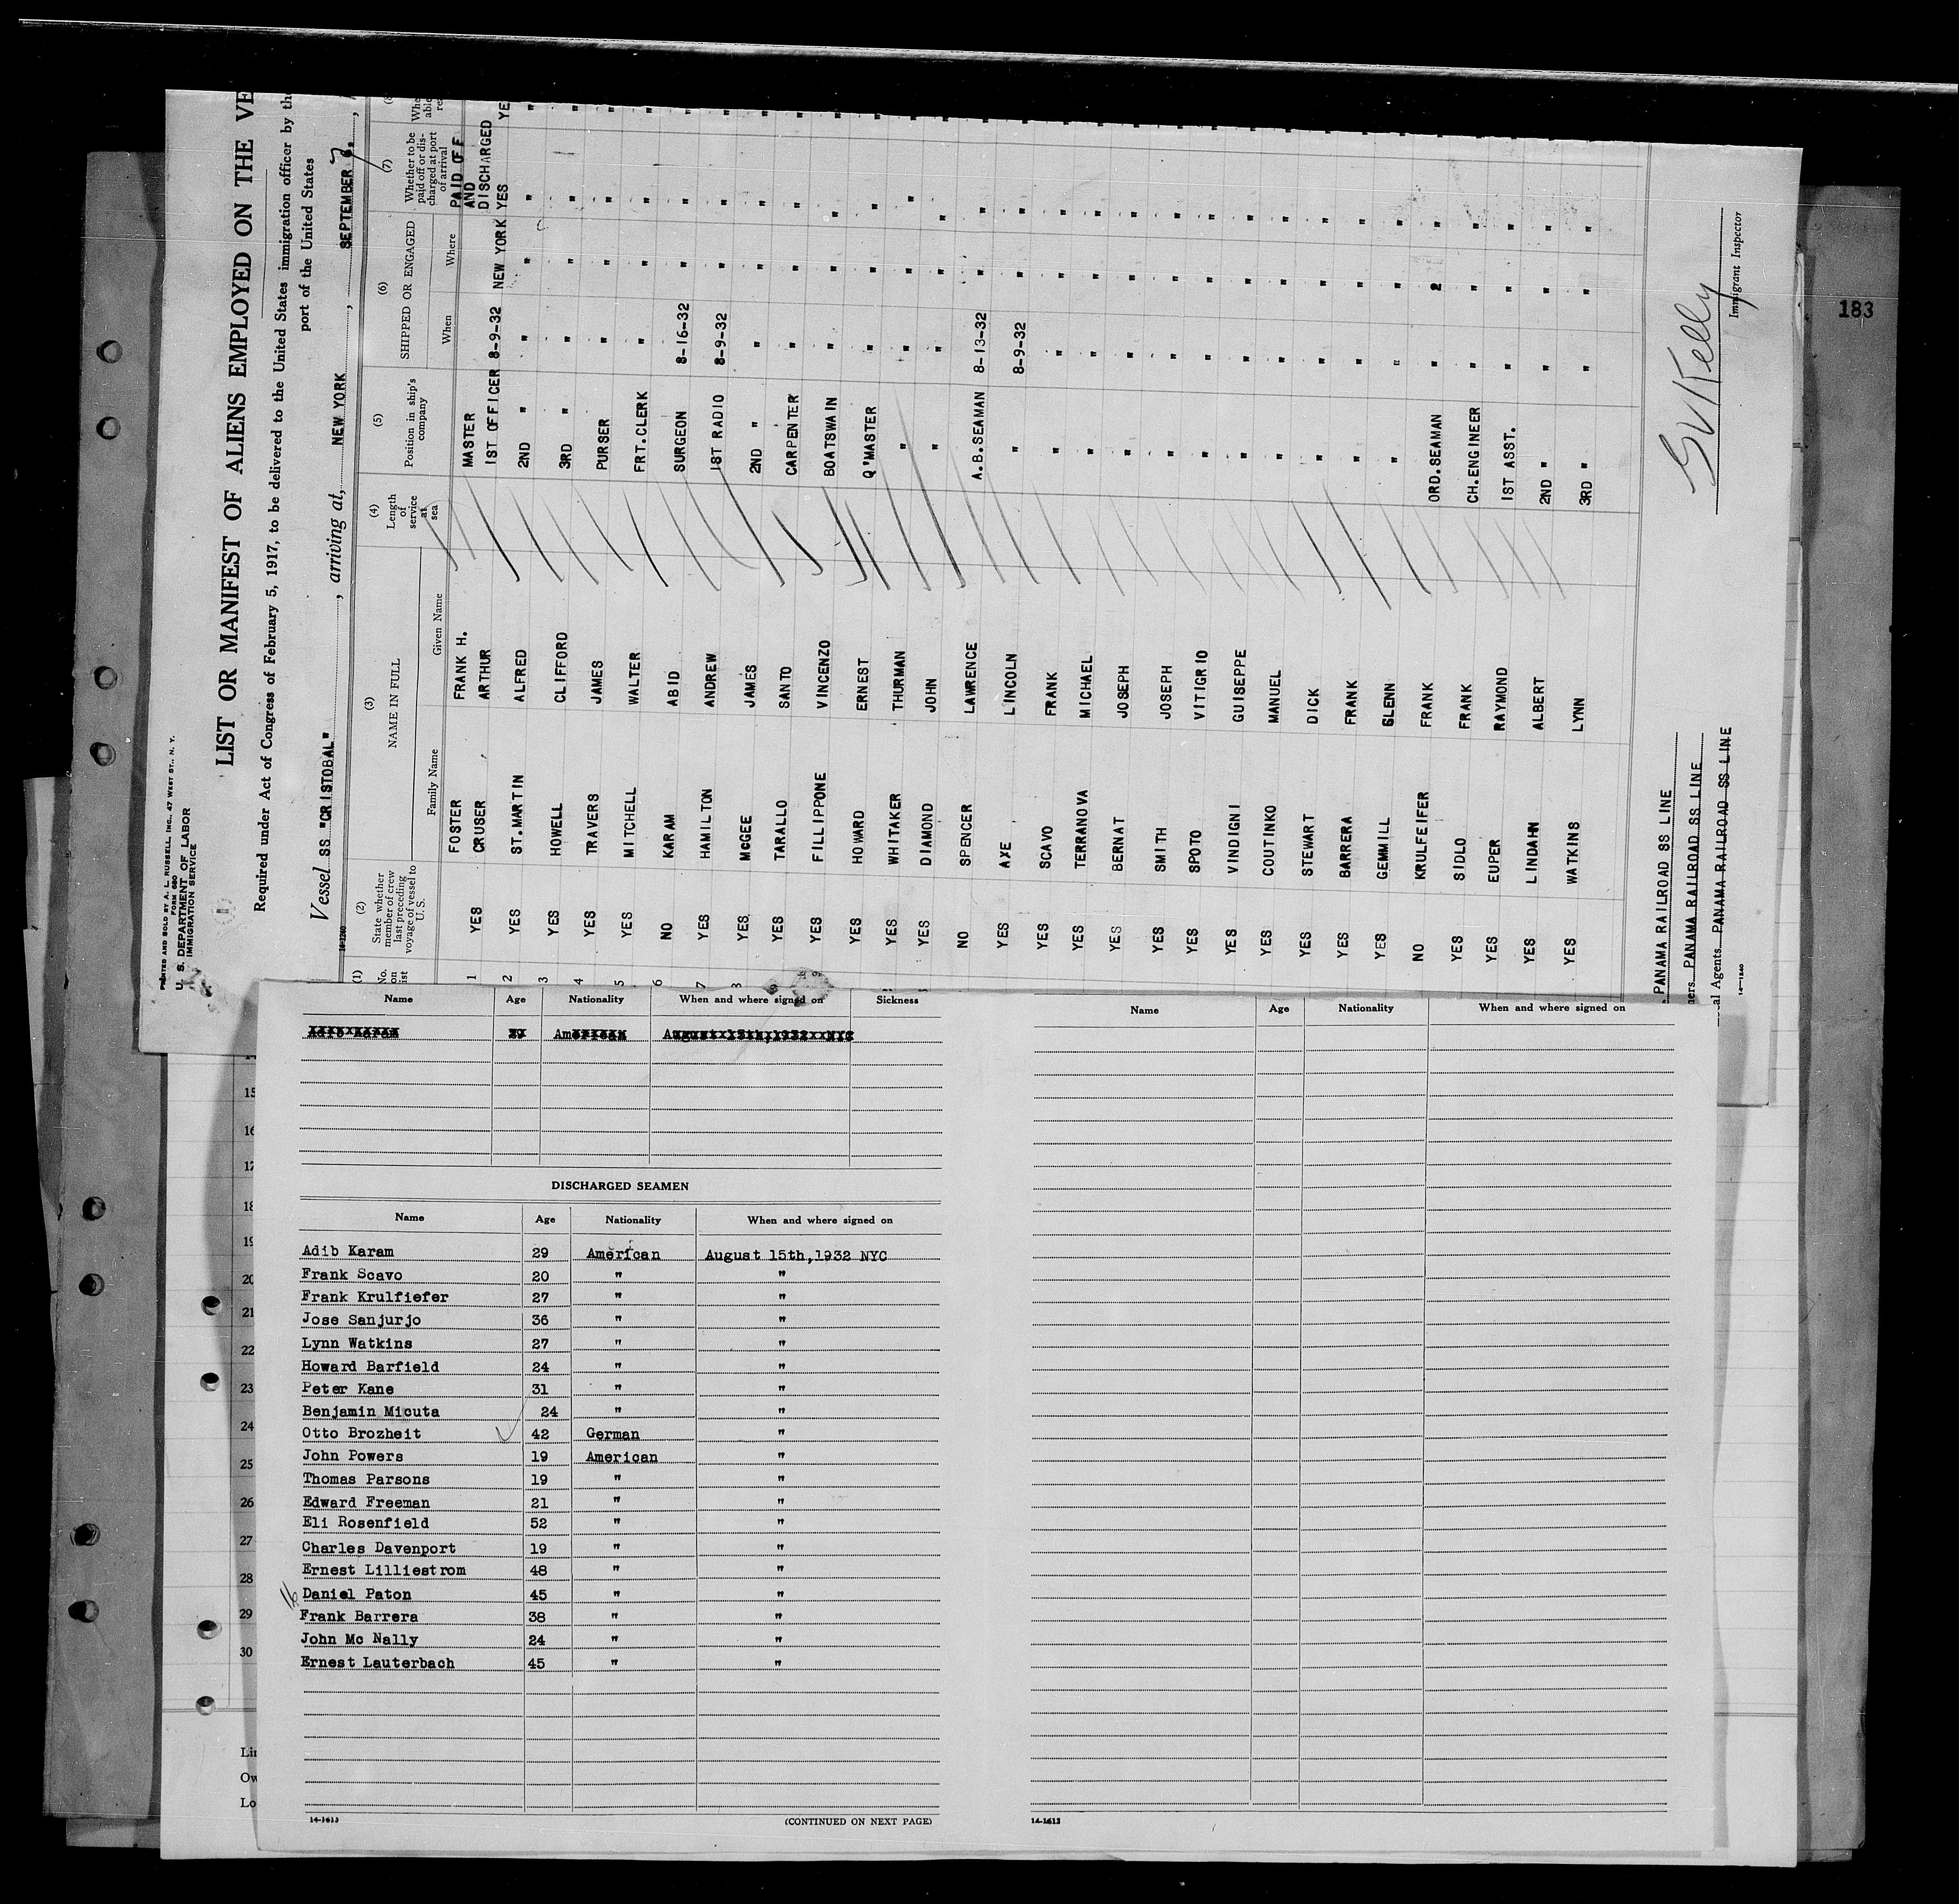 183
PRINTED AND SOLD BY A. L. RUSSELL, INC., 47 WEST ST., N. Y.
FORM 680
U. S. DEPARTMENT OF LABOR
IMMIGRATION SERVICE
LIST OR MANIFEST OF ALIENS EMPLOYED ON THE VE
Required under Act of Congress of February 5, 1917, to be delivered to the United States immigration officer by the
port of the United States
Vessel SS "CRISTOBAL", arriving at, NEW YORK, SEPTEMBER 7,
14-1240
(1) (2) (3) (4) (5) (6) (7)
No. on list State whether member of crew last preceding voyage of vessel to U. S. NAME IN FULL Length of service at sea Position in ship's company SHIPPED OR ENGAGED Whether to be paid off or discharged at port of arrival
Family Name Given Name When Where
FOSTER FRANK H. MASTER PAID OFF AND DISCHARGED
1 YES CRUSER ARTHUR 1ST OFFICER 8-9-32 NEW YORK YES YE
2 YES ST.MARTIN ALFRED 2ND " " " " "
3 YES HOWELL CLIFFORD 3RD " " " " "
4 YES TRAVERS JAMES PURSER " " " "
5 YES MITCHELL WALTER FRT.CLERK " " " "
6 NO KARAM ABID SURGEON 8-16-32 " " "
7 YES HAMILTON ANDREW 1ST RADIO 8-9-32 " " "
YES MCGEE JAMES 2ND " " " " "
YES TARALLO SANTO CARPENTER " " " "
YES FILLIPPONE VINCENZO BOATSWAIN " " " "
YES HOWARD ERNEST Q'MASTER " " " "
YES WHITAKER THURMAN " " " " "
YES DIAMOND JOHN " " " " "
NO SPENCER LAWRENCE A.B.SEAMAN 8-13-32 " " "
YES AXE LINCOLN " 8-9-32 " " "
YES SCAVO FRANK " " " " "
YES TERRANOVA MICHAEL " " " " "
YES BERNAT JOSEPH " " " " "
YES SMITH JOSEPH " " " " "
YES SPOTO VITIGRIO " " " " "
YES VINDIGNI GUISEPPE " " " " "
YES COUTINKO MANUEL " " " " "
YES STEWART DICK " " " " "
YES BARRERA FRANK " " " " "
YES GEMMILL GLENN " " " " "
NO KRULFEIFER FRANK ORD.SEAMAN " 2 " "
YES SIDLO FRANK CH.ENGINEER " " " "
YES EUPER RAYMOND 1ST ASST. " " " "
YES LINDAHN ALBERT 2ND " " " " "
YES WATKINS LYNN 3RD " " " " "
PANAMA RAILROAD SS LINE
ners PANAMA RAILROAD SS LINE
al Agents PANAMA RAILROAD SS LINE
14-1240
Immigrant Inspector
Name Age Nationality When and where signed on Sickness
DISCHARGED SEAMEN
Name Age Nationality When and where signed on
Adib Karam 29 American August 15th,1932 NYC
Frank Scavo 20 " "
Frank Krulfiefer 27 " "
Jose Sanjurjo 36 " "
Lynn Watkins 27 " "
Howard Barfield 24 " "
Peter Kane 31 " "
Benjamin Micuta 24 " "
Otto Brozheit 42 German "
John Powers 19 American "
Thomas Parsons 19 " "
Edward Freeman 21 " "
Eli Rosenfield 52 " "
Charles Davenport 19 " "
Ernest Lilliestrom 48 " "
Daniel Paton 45 " "
Frank Barrera 38 " "
John Mc Nally 24 " "
Ernest Lauterbach 45 " "
14-1613 (CONTINUED ON NEXT PAGE)
Name Age Nationality When and where signed on
14-1613
15
16
17
18
19
20
21
22
23
24
25
26
27
28
29
30
Lin
Ow
Lo